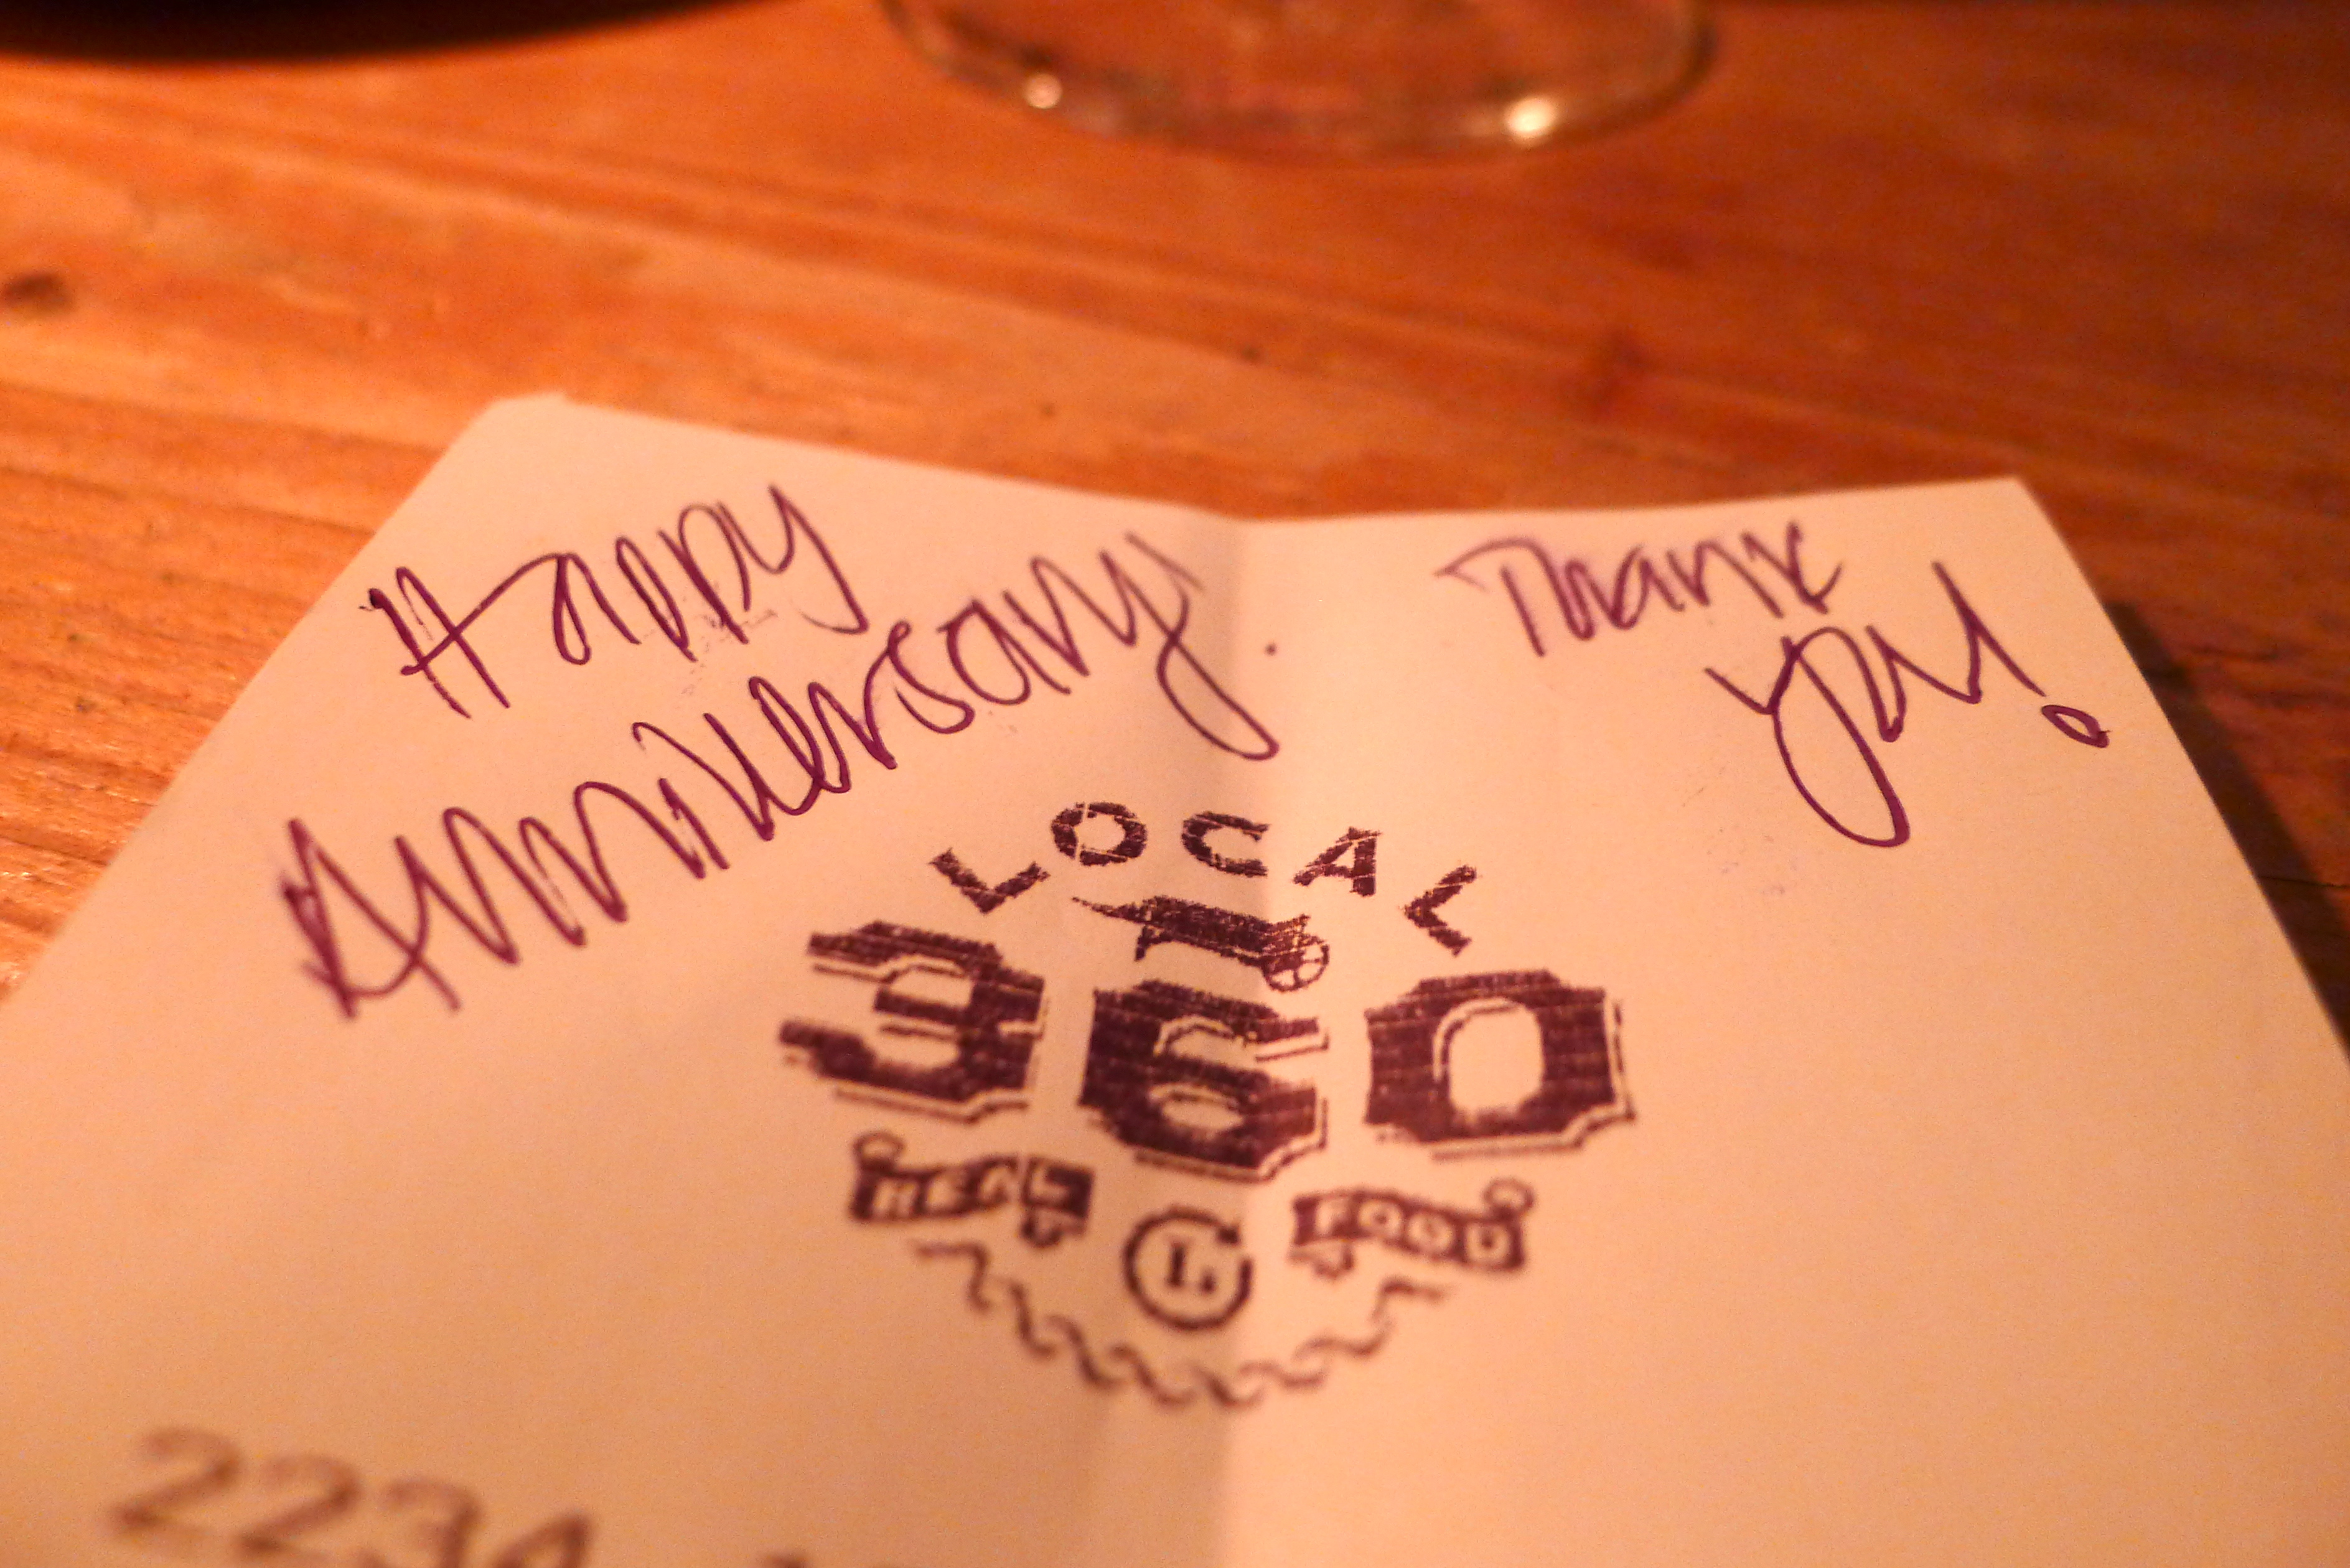 Happy
Anniversary.
Thank
you!
LOCAL
360
REAL FOOD
L
2234